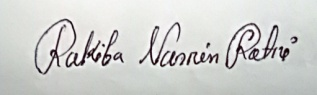 Rakiba Nasrin Rathi